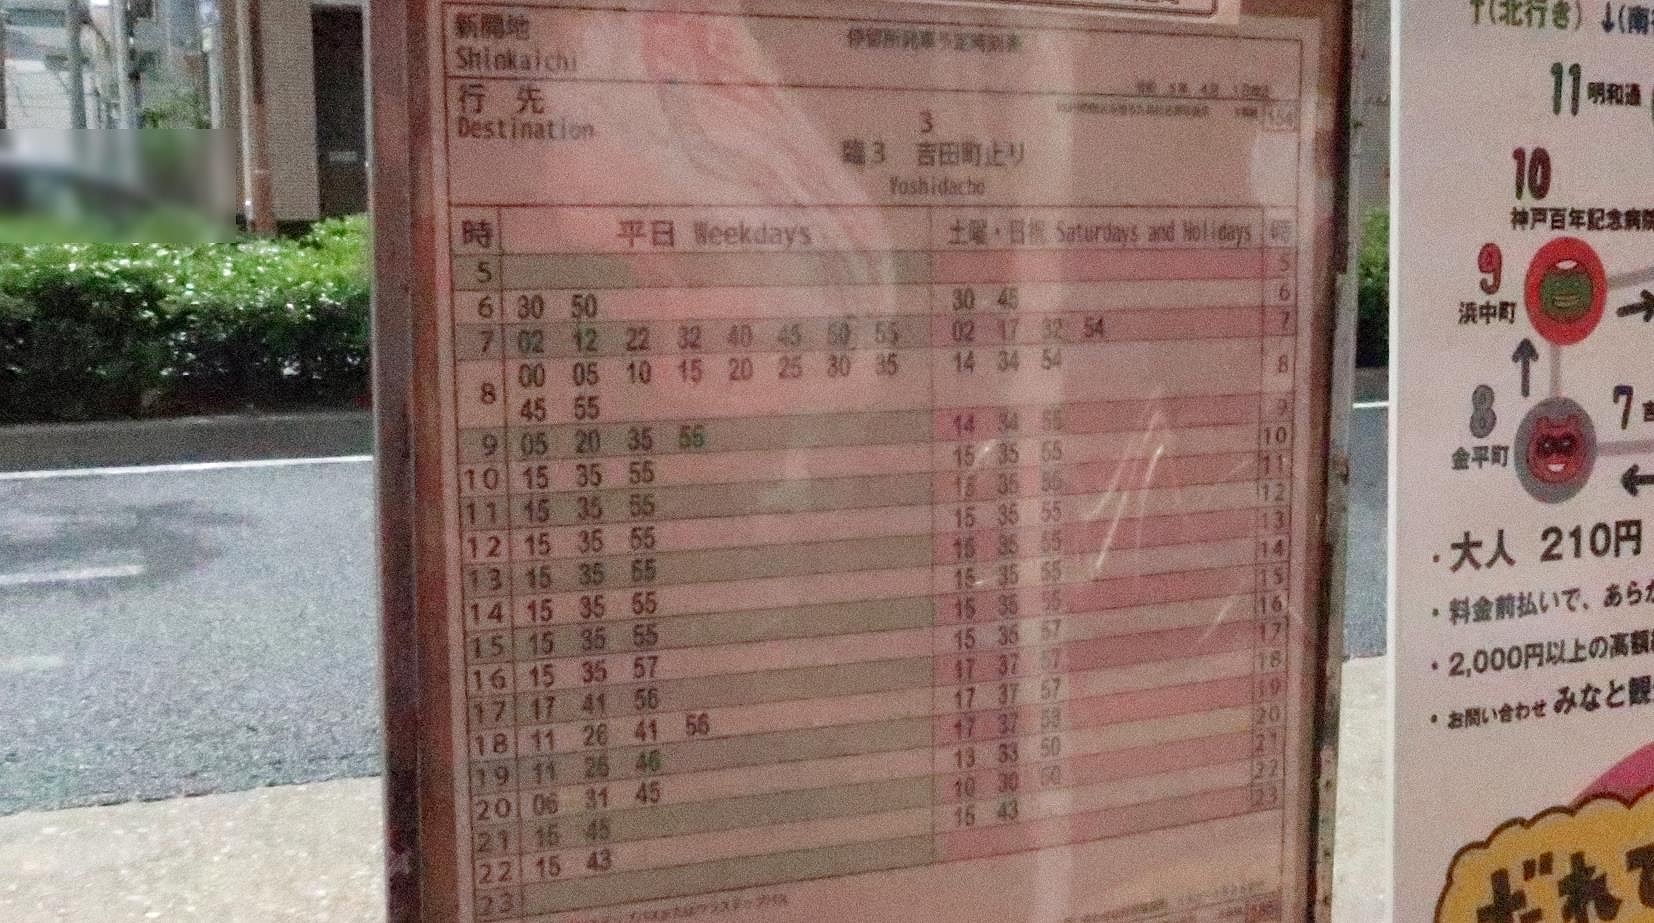 新開地
Shinkaichi
停留所発車予定時刻表
行 先
Destination
3
臨3 吉田町止り
Yoshidacho
時 平日 Weekdays 土曜・日祝 Saturdays and Holidays 時
5 5
6 30 50 30 45 6
7 02 12 22 32 40 45 50 55 02 17 32 54 7
8 00 05 10 15 20 25 30 35 14 34 54 8
45 55
9 05 20 35 55 14 34 55 9
10 15 35 55 15 35 55 10
11 15 35 55 15 35 55 11
12 15 35 55 15 35 55 12
13 15 35 55 15 35 55 13
14 15 35 55 15 35 55 14
15 15 35 55 15 35 55 15
16 15 35 57 15 35 57 16
17 17 41 56 17 37 57 17
18 11 26 41 56 17 37 57 18
19 11 26 46 17 37 19
20 06 31 45 13 33 50 20
21 15 45 10 30 21
22 15 43 15 43 22
23 23
↑(北行き) ↓(南
11 明和通
10
神戸百年記念病院
9
浜中町
8
金平町
7
・大人 210円
・料金前払いで、あらか
・2,000円以上の高額
・お問い合わせ みなと観
だれで